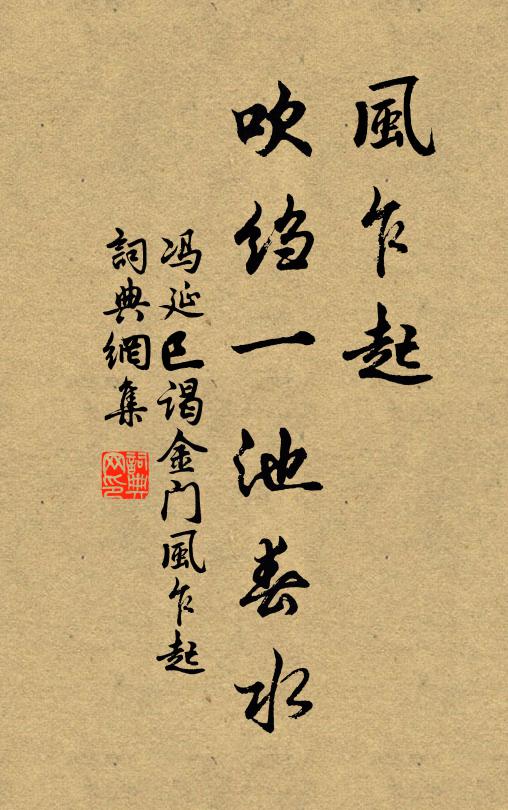 風乍起
吹绉一池春水
冯延巳谒金门風乍起
詞典網集
詞典网印